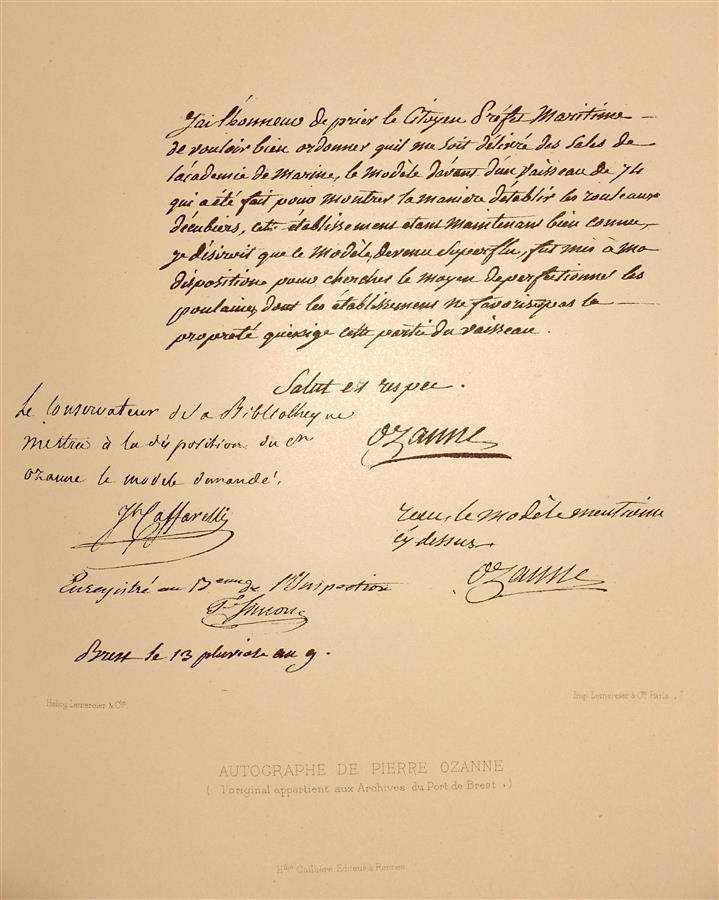 J'ai l'honneur de prier le Citoyen Préfet Maritime
de vouloir bien ordonner quil me soit délivré des Sales de
lacademie de Marine, le modèle davant dun Vaisseau de 74
qui a été fait pour montrer la maniere détablir les rouleaux
décubiers, cet établissement etant Maintenant bien connu,
je désirerois que le Modèle, devenu Superflu, fut mis à ma
disposition pour chercher le moyen de perfectionner les
poulaines, dont les établissement ne favorise pas la
propreté quexige cette partie du vaisseau.
Salut et respec.
Le Conservateur de la Bibliotheque
mettra à la disposition du Cen
Ozanne le modele demandé.
Ozanne
Jh Caffarelli
recu, le Modèle mentionné
cy dessus.
Ozanne
Enregistré au Bureau de l'Inspection
Brest le 13 pluviose an 9.
Héliog. Lemercier & Cie.
Imp. Lemercier & Cie. Paris.
AUTOGRAPHE DE PIERRE OZANNE
( l'original appartient aux Archives du Port de Brest. )
Hthe Caillière Editeur à Rennes